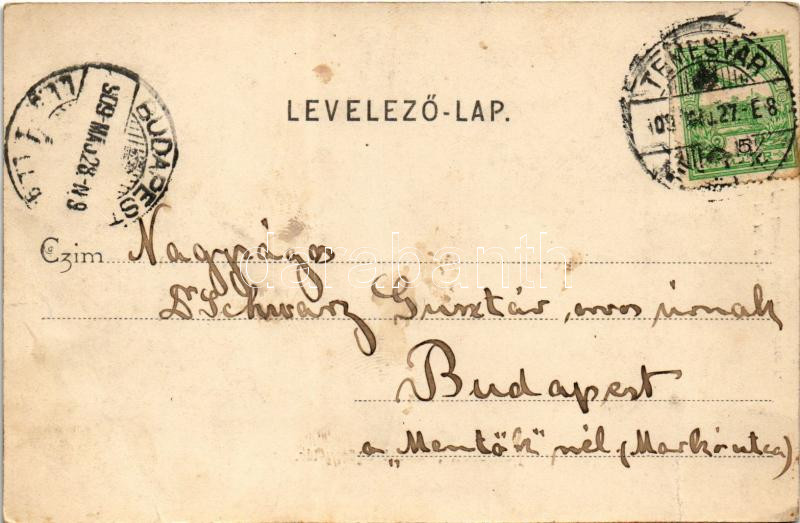 LEVELEZŐ-LAP.
TEMESVÁR
BUDAPEST
909 MÁJ.28-N.9
909 MÁJ.27.-E8
5
Czim Nagyságos
Dr Schwarz Gusztáv, orvos úrnak
Budapest
a „Mentők" nél (Markó utca)
darabanth